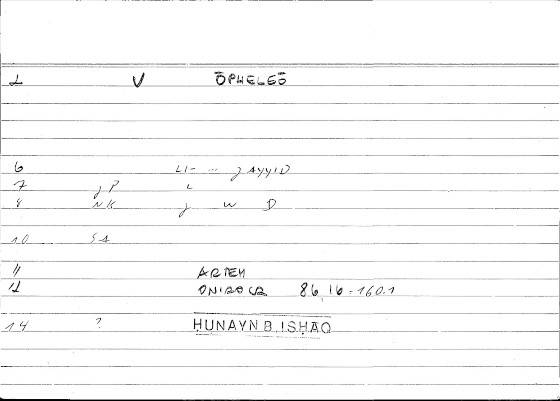 1 V ŌPHELEŌ
6 LI- ... ǧAYYID
7 ǧP L
8 NK ǧ W D
10 51
11 ARTEM
12 ONIROCR 86,16 = 160.1
14 ? ḤUNAYN B. ISḤĀQ